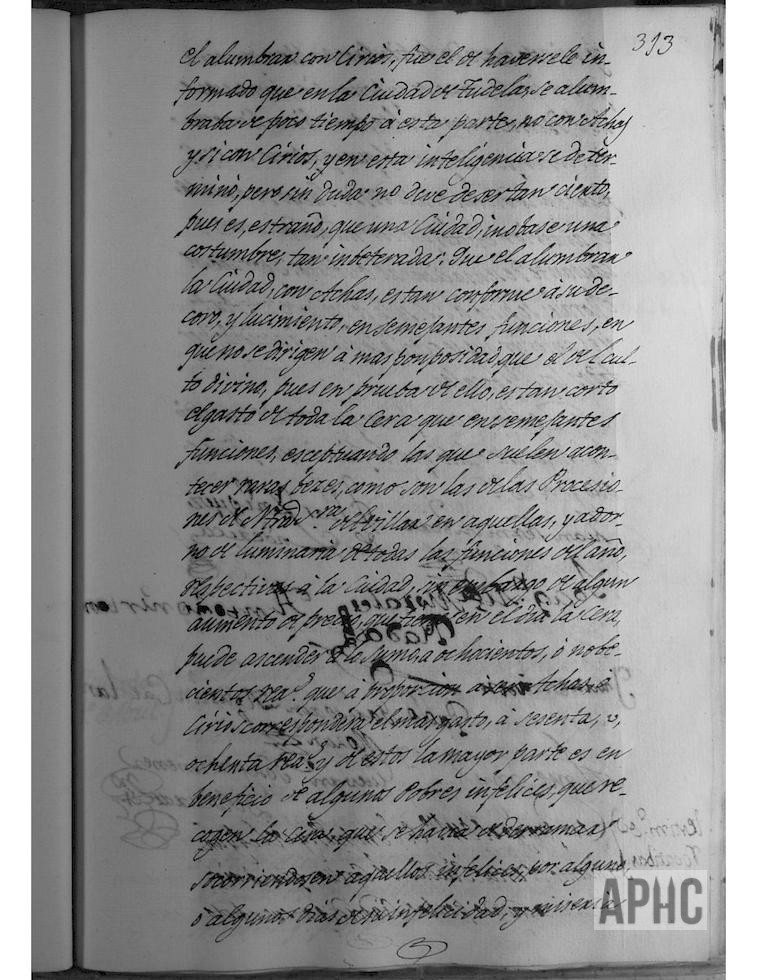 313
el alumbrar con Cirios, fue el de haversele in-
formado que en la Ciudad de Tudela, se alum-
braba de poco tiempo à esta parte, no con Achas
y si con Cirios, y en esta inteligencia se deter-
minò, pero sin duda no deve de ser tan cierto,
pues es, estraño, que una Ciudad, inobase una
costumbre, tan inbeterada: Que el alumbrar
la Ciudad, con Achas, es tan conforme à su de-
coro, y lucimiento, en semejantes funciones, en
que no se dirigen à mas ponposidad que el del Cul-
to divino, pues en prueba de ello, es tan corto
el gasto de toda la Cera que en semejantes
funciones, esceptuando las que suelen acon-
tecer raras bezes, como son las de las Procesio-
nes de Ntra. Sra. del Pilar en aquellas, y ador-
no de luminaria de todas las funciones del año,
respectivas à la Ciudad, sin embargo de algun
aumento de precio, que tiene en el dia la Cera,
puede ascender à la suma de ochocientos, ò nobe-
cientos rea.s que à proporcion
Cirios corresponderà el mas gasto, à sesenta, ù,
ochenta rea.s y de estos la mayor parte es en
beneficio de algunos Pobres infelices, que re-
cogen la Cera, que se havia de derramar
socorriendose aquellos infelices, por alguno,
ò algunos dias de su infelicidad, y miseria
APHC